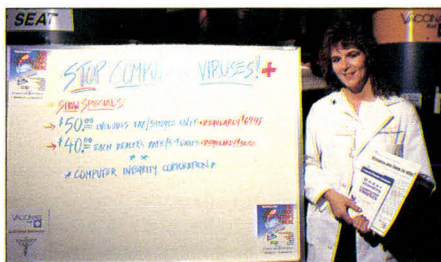 SEAT
VACCINATE
STOP COMPUTER VIRUSES!
SHOW SPECIALS
→ $50.00 INCLUDES TAX/SINGLE UNIT • REGULARLY $69.95
→ $40.00 EACH DEALERS RATE/5+ UNITS • REGULARLY
* *
* COMPUTER INTEGRITY CORPORATION *
VACCINATE